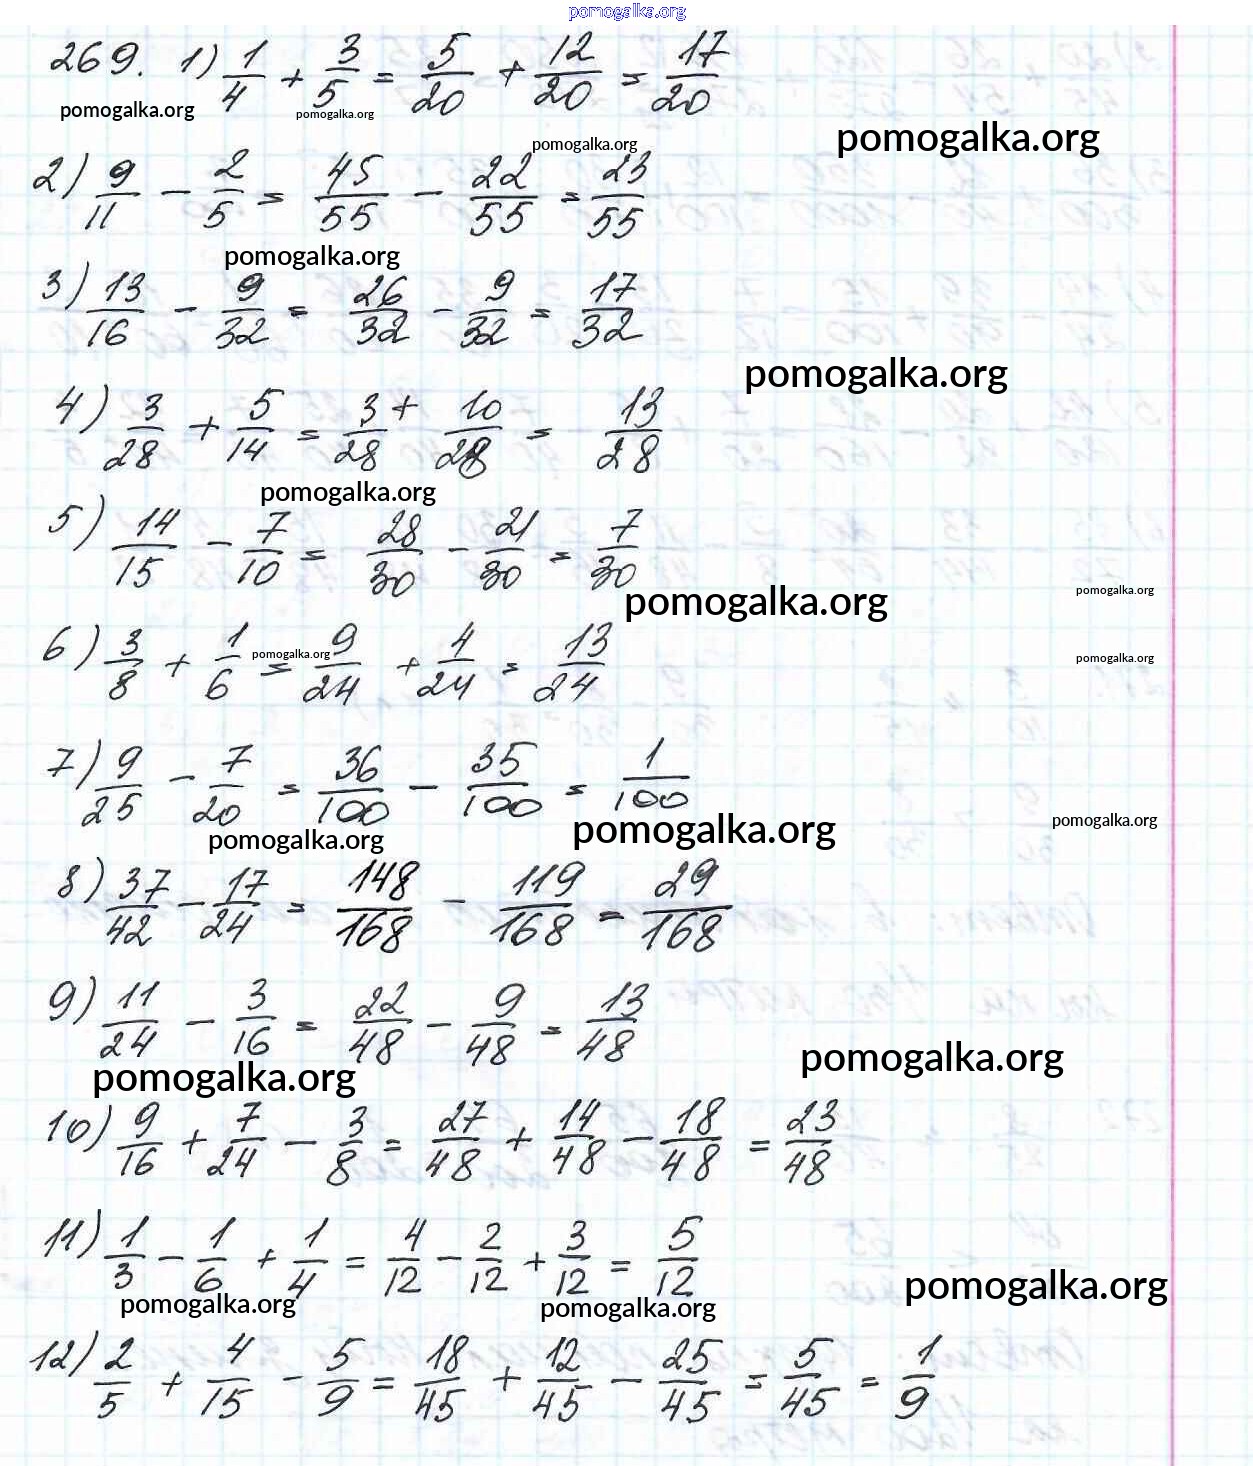 pomogalka.org
269. 1) 1/4 + 3/5 = 5/20 + 12/20 = 17/20
pomogalka.org pomogalka.org
pomogalka.org pomogalka.org
2) 9/11 - 2/5 = 45/55 - 22/55 = 23/55
pomogalka.org
3) 13/16 - 9/32 = 26/32 - 9/32 = 17/32
pomogalka.org
4) 3/28 + 5/14 = 3/28 + 10/28 = 13/28
pomogalka.org
5) 14/15 - 7/10 = 28/30 - 21/30 = 7/30
pomogalka.org pomogalka.org
6) 3/8 + 1/6 = 9/24 + 4/24 = 13/24
pomogalka.org pomogalka.org
7) 9/25 - 7/20 = 36/100 - 35/100 = 1/100
pomogalka.org pomogalka.org pomogalka.org
8) 37/42 - 17/24 = 148/168 - 119/168 = 29/168
9) 11/24 - 3/16 = 22/48 - 9/48 = 13/48
pomogalka.org pomogalka.org
10) 9/16 + 7/24 - 3/8 = 27/48 + 14/48 - 18/48 = 23/48
11) 1/3 - 1/6 + 1/4 = 4/12 - 2/12 + 3/12 = 5/12
pomogalka.org pomogalka.org pomogalka.org
12) 2/5 + 4/15 - 5/9 = 18/45 + 12/45 - 25/45 = 5/45 = 1/9